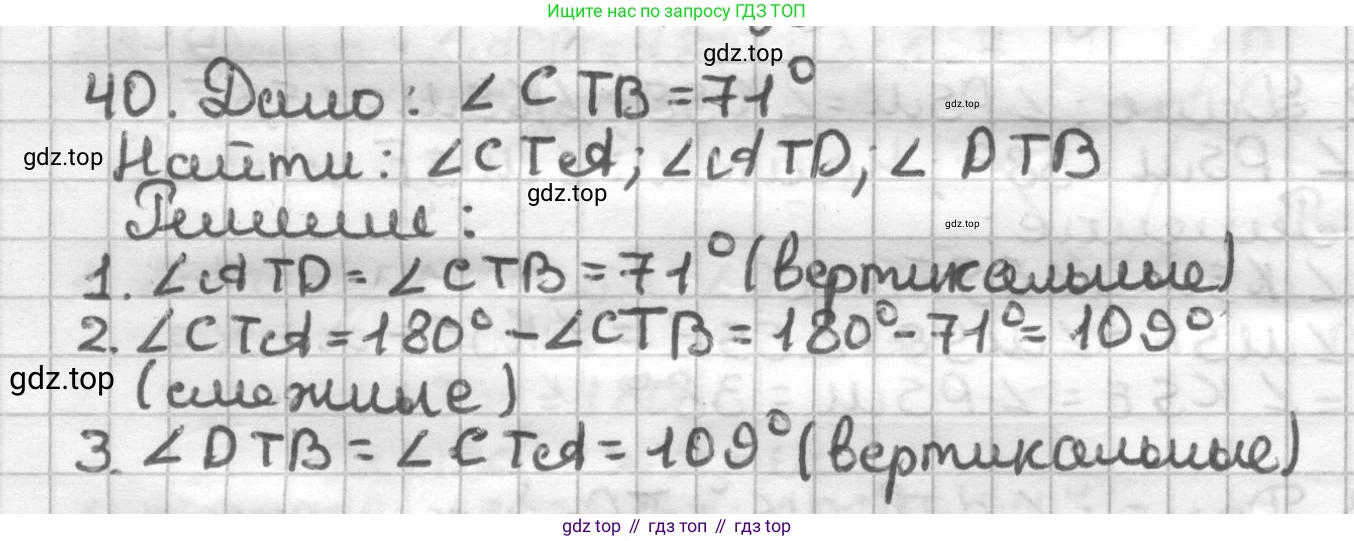 Ищите нас по запросу ГДЗ ТОП
gdz.top
40. Дано: ∠CTB = 71°
gdz.top
gdz.top Найти: ∠CTA; ∠ATD; ∠DTB
gdz.top
Решение:
gdz.top
1. ∠ATD = ∠CTB = 71° (вертикальные)
2. ∠CTA = 180° - ∠CTB = 180° - 71° = 109°
gdz.top (смежные)
3. ∠DTB = ∠CTA = 109° (вертикальные)
gdz top // гдз топ // gdz top